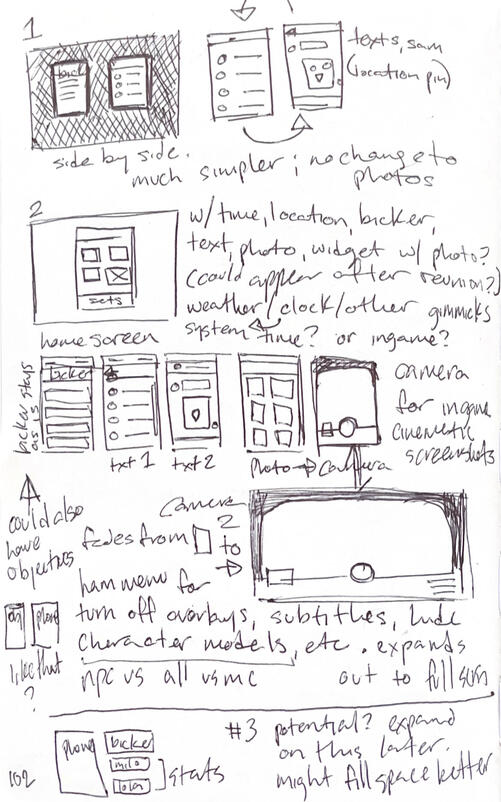 1
bicker
texts, sam
(location pin)
side by side.
much simpler; no change to
photos
2
w/ time, location, bicker,
text, photo, widget w/ photo?
(could appear after reunion?)
weather/clock/other gimmicks
system time? or ingame?
sets
homescreen
bicker stays
as is
bicker
txt 1
txt 2
photo → camera
camera
for ingame
cinematic
screenshots
could also
have
objectives
camera
2
fades from
to
ham menu for
turn off overlays, subtitles, hide
character models, etc. expands
npc vs all vs mc
out to full scrn
obj
phone
like that
?
phone
bicker
milo
lola
stats
#3 potential? expand
on this later.
might fill space better
102